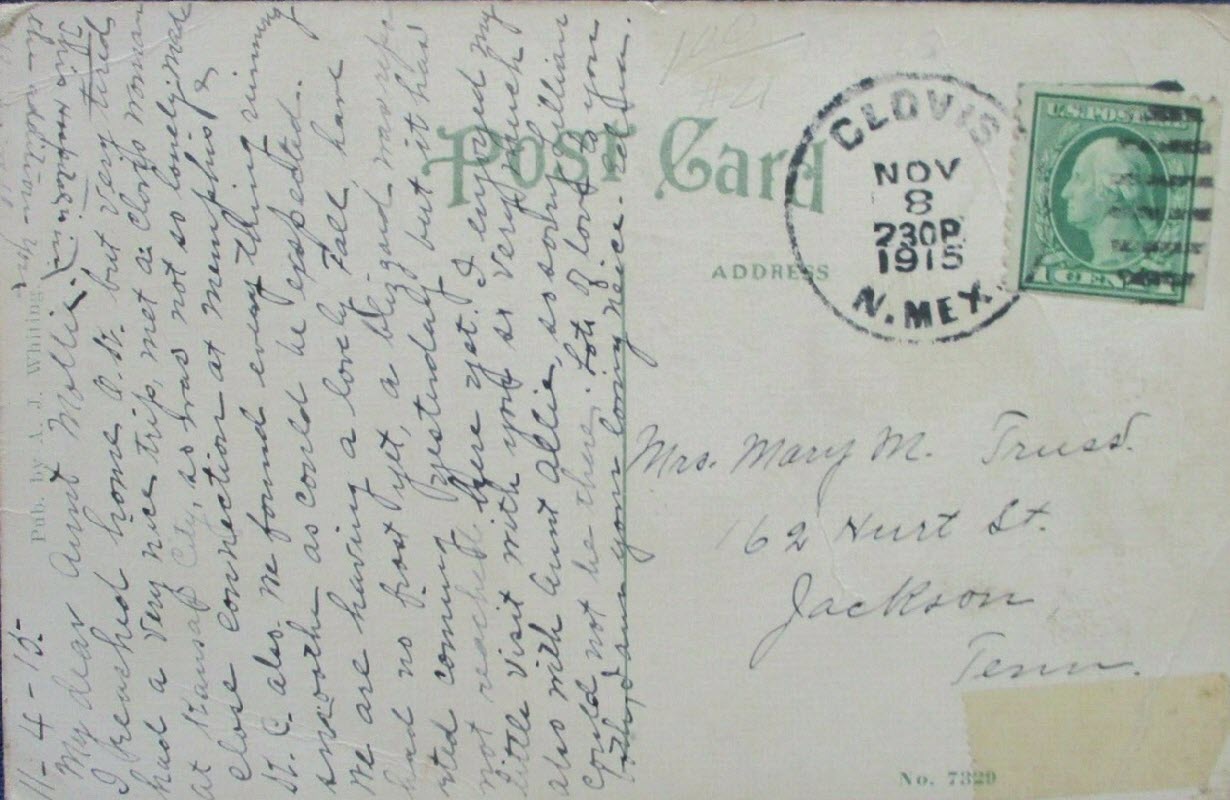 100
#21
Post Card
ADDRESS
CLOVIS
NOV
8
230P.
1915
N. MEX.
U.S. POSTAGE
1 CENT
Mrs. Mary M. Truss.
62 Hurt St.
Jackson
Tenn.
No. 7329
Pub. by A. J. Whiting
11-4-15-
My dear Aunt Mollie:
I reached home O.K. but very tired
had a very nice trip, met a Clovis woman
at Kansas City, so was not so lonely, made
close connection at Memphis &
K. C. also. We found every thing running
smoothe as could be expected.
We are having a lovely Fall, have
had no frost yet, a blizzard was repo-
rted coming yesterday but it has
not reached here yet. I enjoyed my
little visit with you so very much
also with Aunt Allie, so sorry Lillian
could not be there. Lots of love to you
from your loving neice.
This